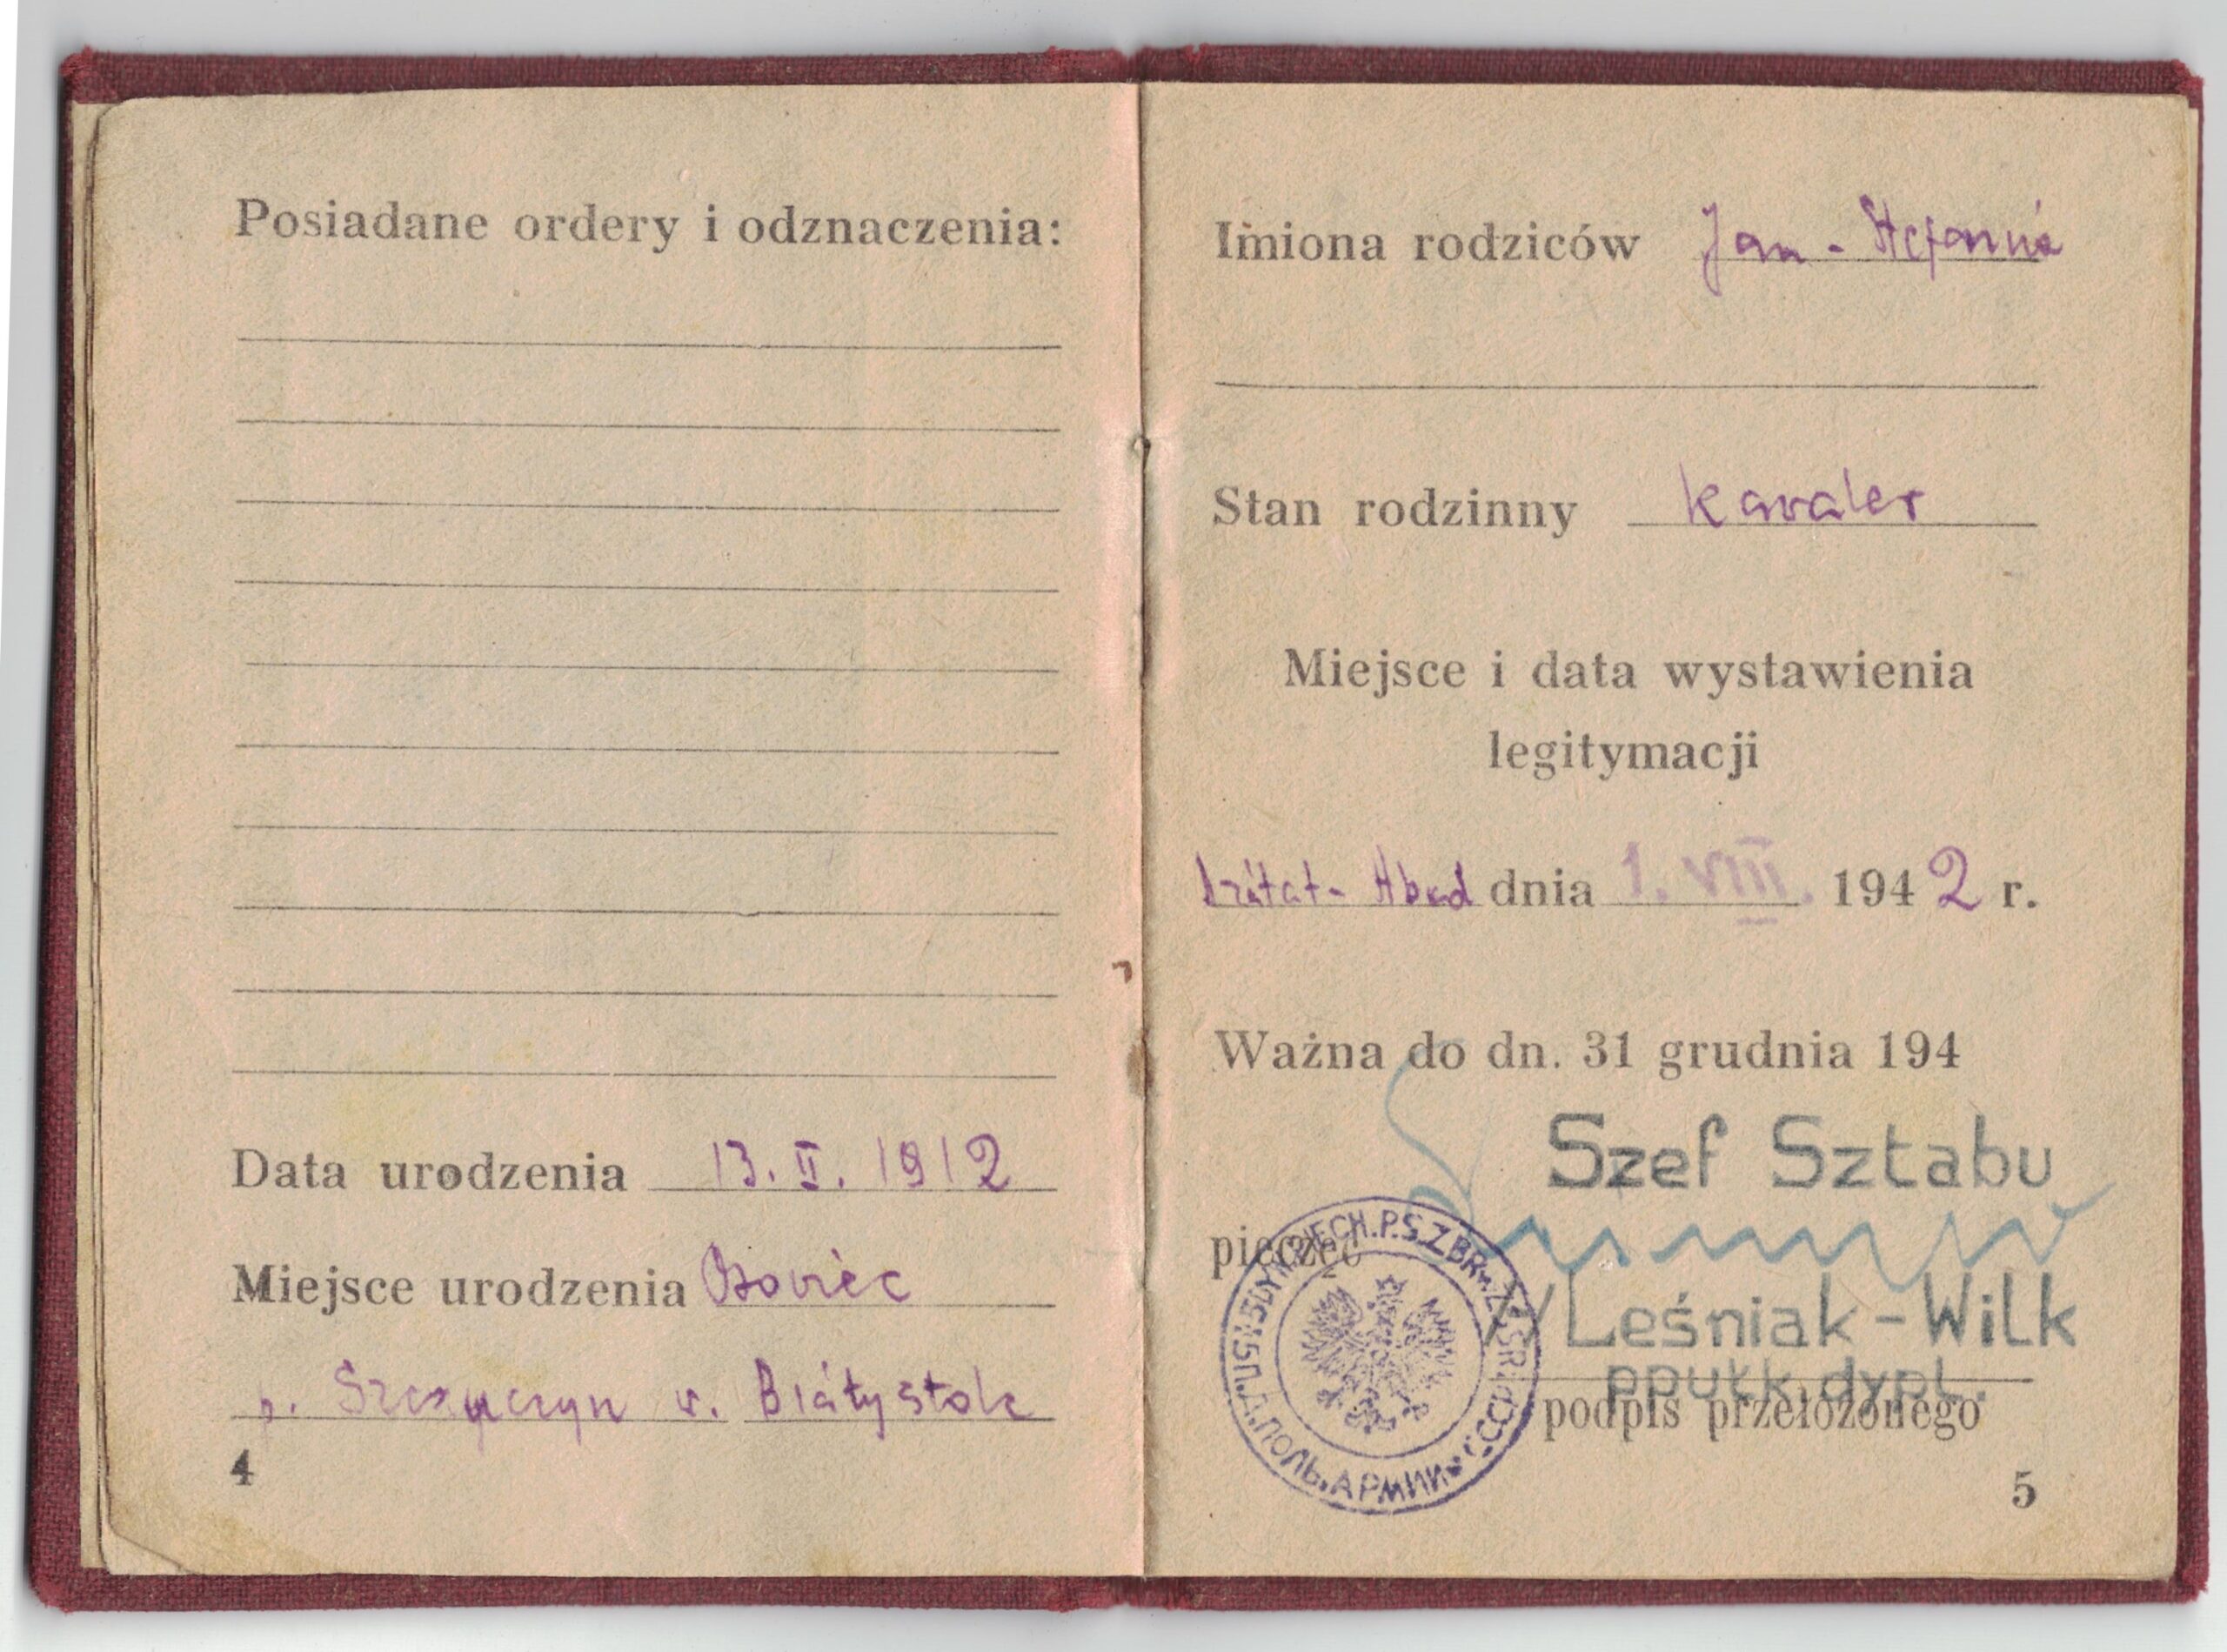 Posiadane ordery i odznaczenia:
Data urodzenia 13. II. 1912
Miejsce urodzenia Osowiec
p. Szczuczyn w. Białystok
4
Imiona rodziców Jan - Stefania
Stan rodzinny kawaler
Miejsce i data wystawienia
legitymacji
dnia 1. VIII. 1942 r.
Ważna do dn. 31 grudnia 194
Szef Sztabu
pieczęć
/Leśniak-Wilk
ppułk. dypl.
podpis przełożonego
5